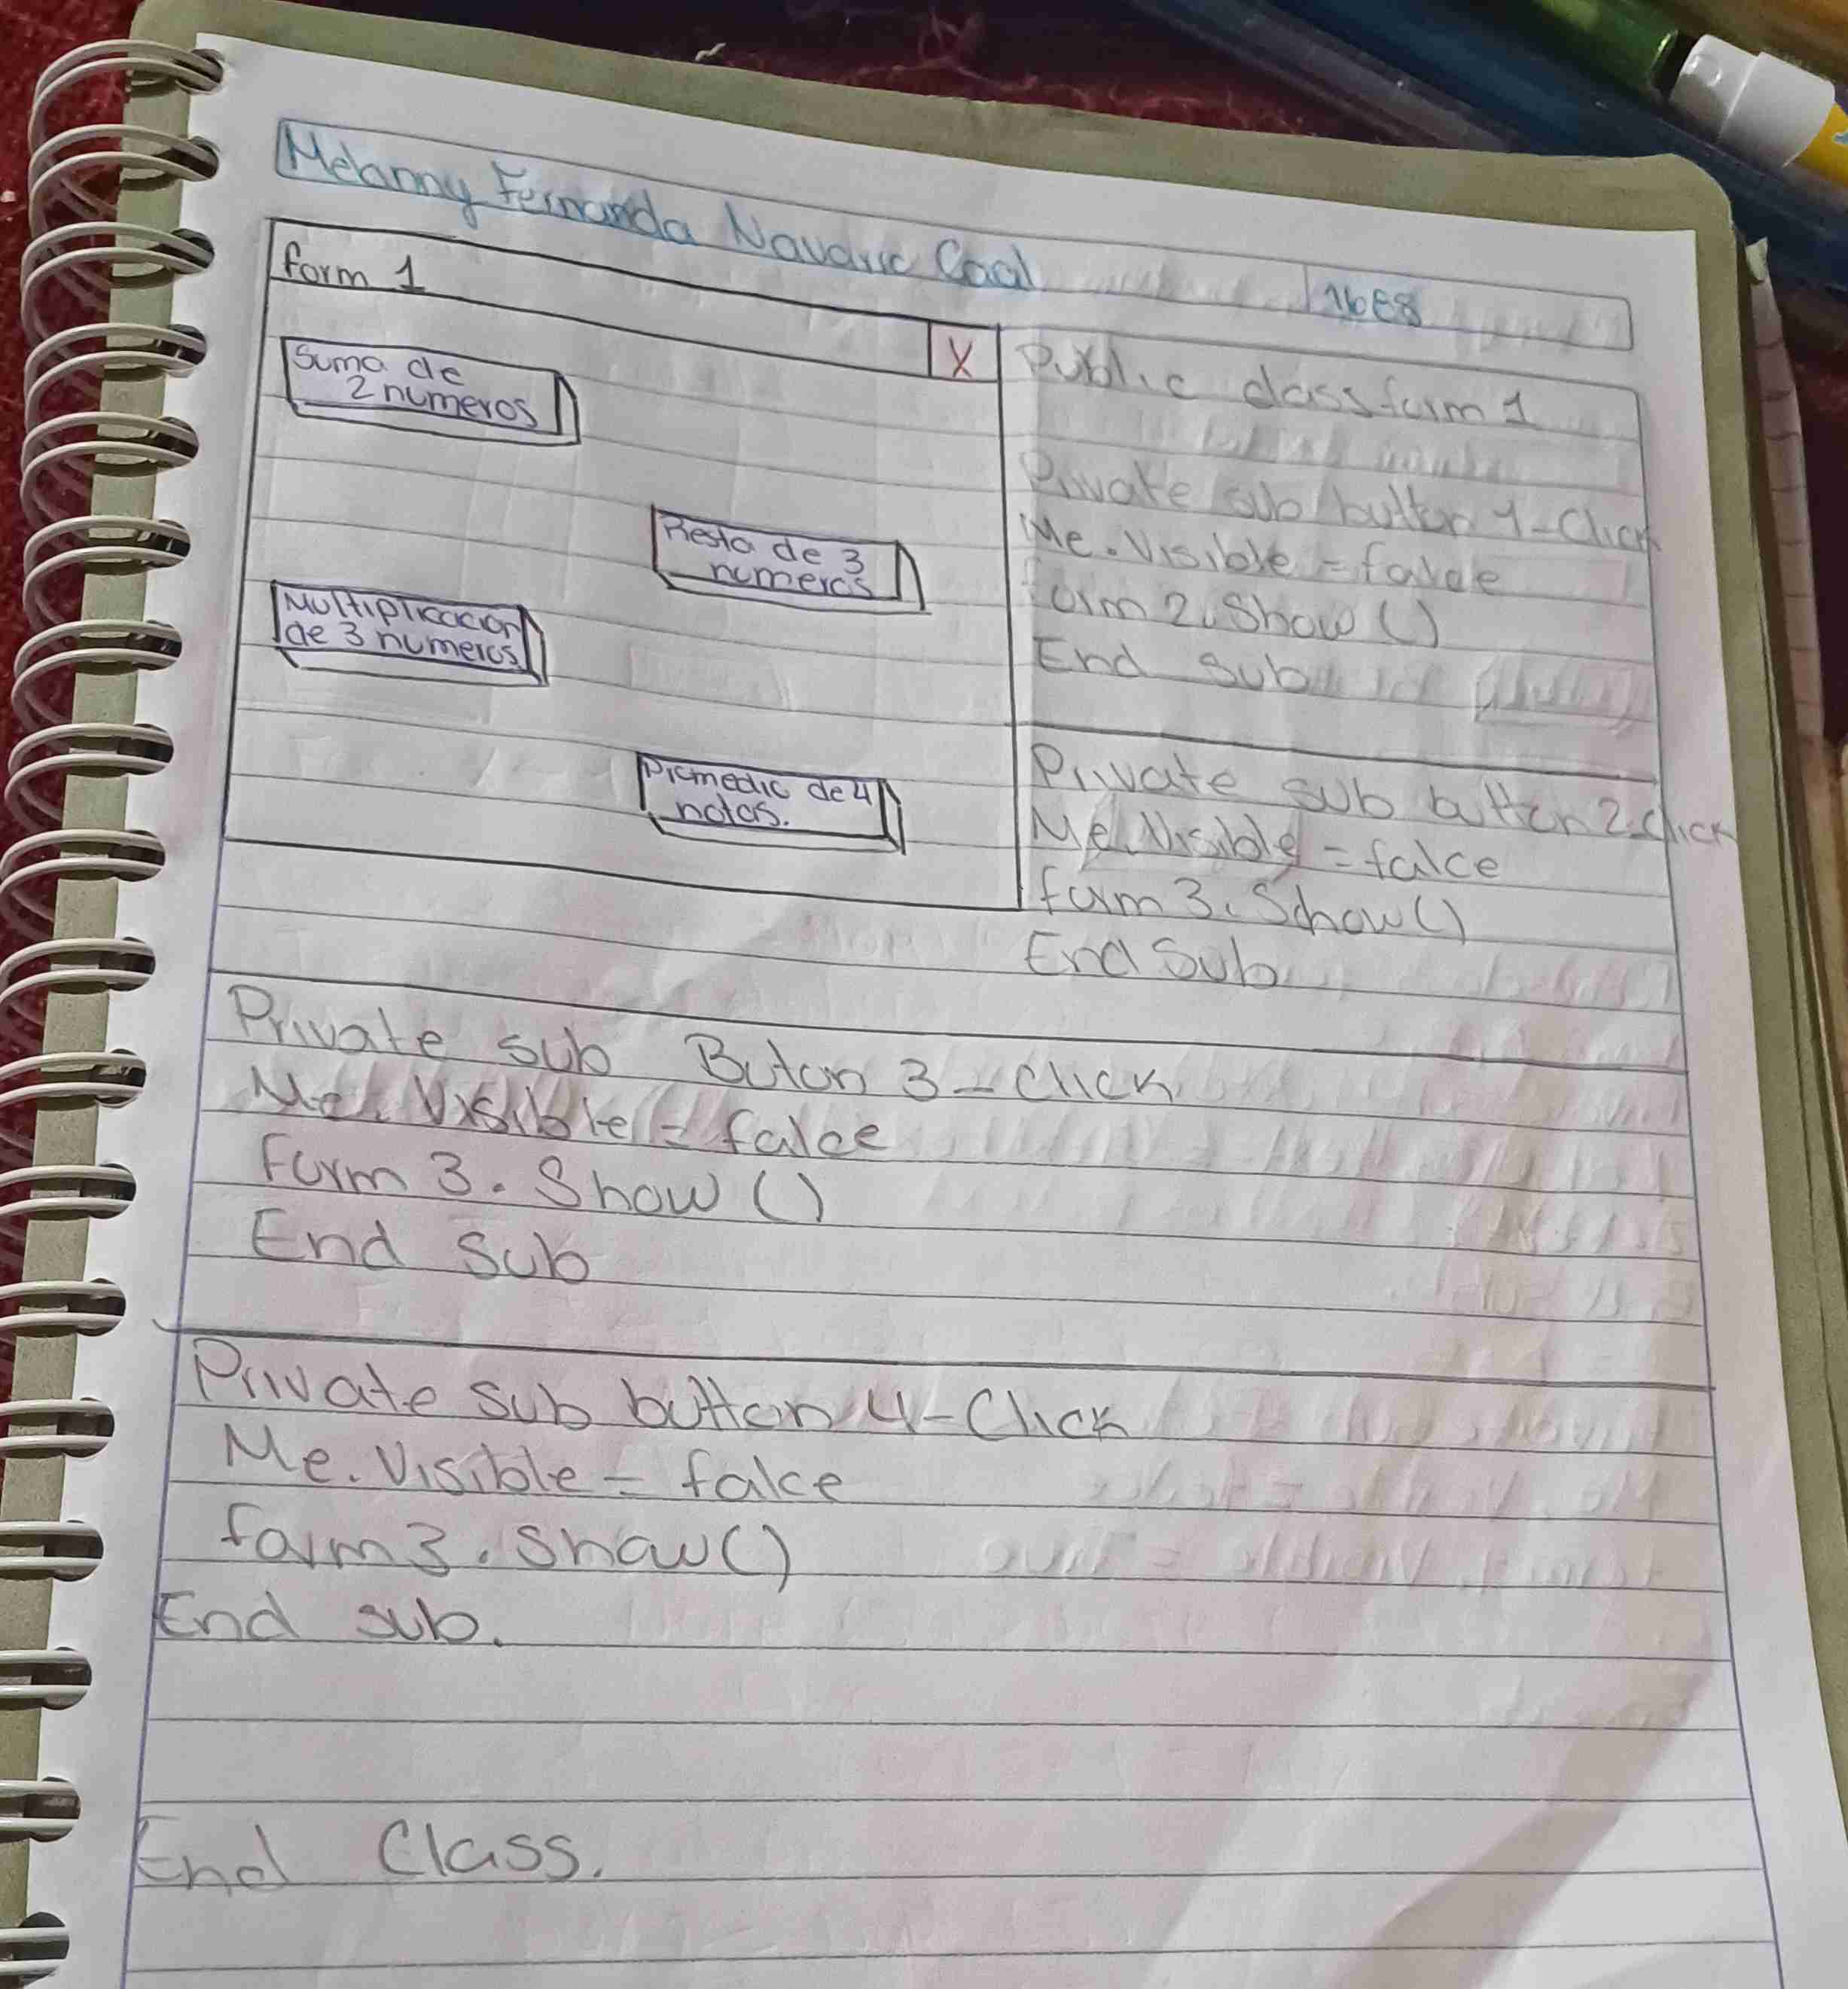 Melanny Fernanda Navarro Caal
16E8
form 1
X
Suma de
2 numeros
Resta de 3
numeros
Multiplicacion
de 3 numeros
Promedio de 4
notas.
Public class form 1
Private sub button 1-Click
Me. Visible = falce
form 2. Show ()
End sub
Private sub button 2-click
Me. Visible = falce
form 3. Schow ()
End Sub
Private sub Buton 3 - Click
Me. Visible = falce
form 3. Show ()
End Sub
Private Sub button 4-Click
Me. Visible = falce
form 3. Show ()
End sub.
End Class.